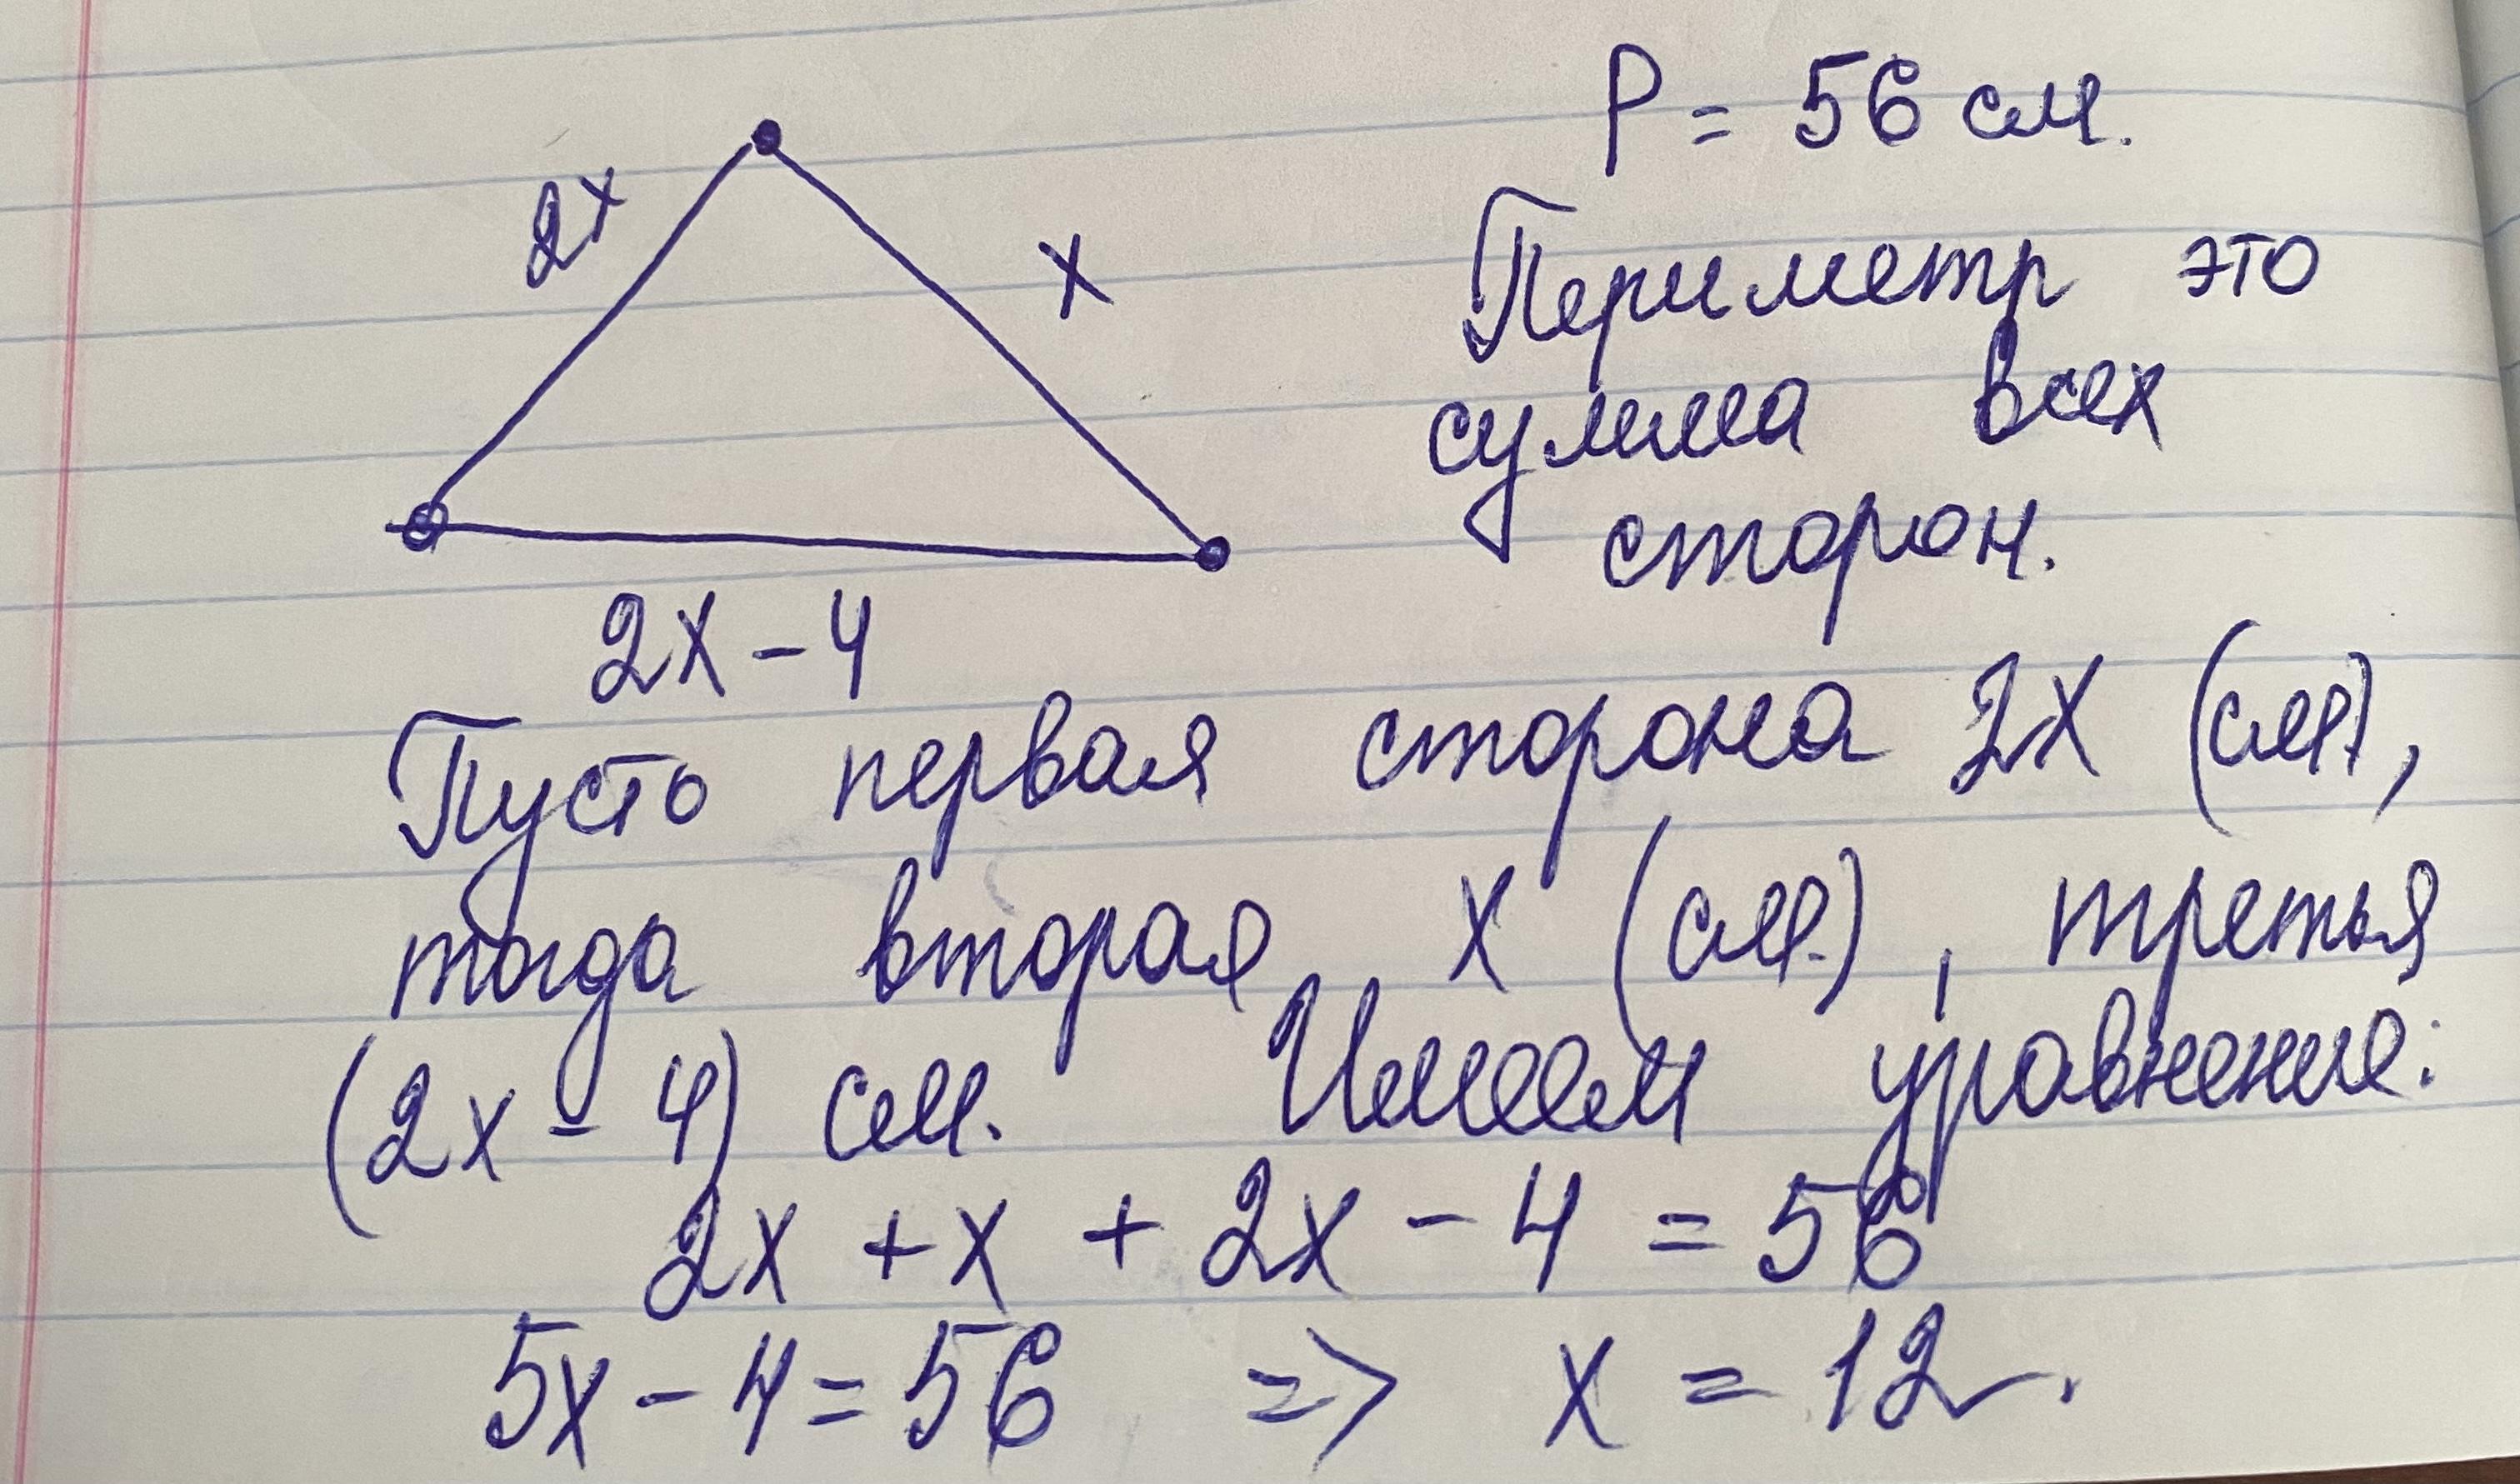 P = 56 см.
2x
x
Периметр это
сумма всех
сторон.
2x - 4
Пусть первая сторона 2x (см),
тогда вторая x (см.), третья
(2x - 4) см. Имеем уравнение:
2x + x + 2x - 4 = 56
5x - 4 = 56 => x = 12.